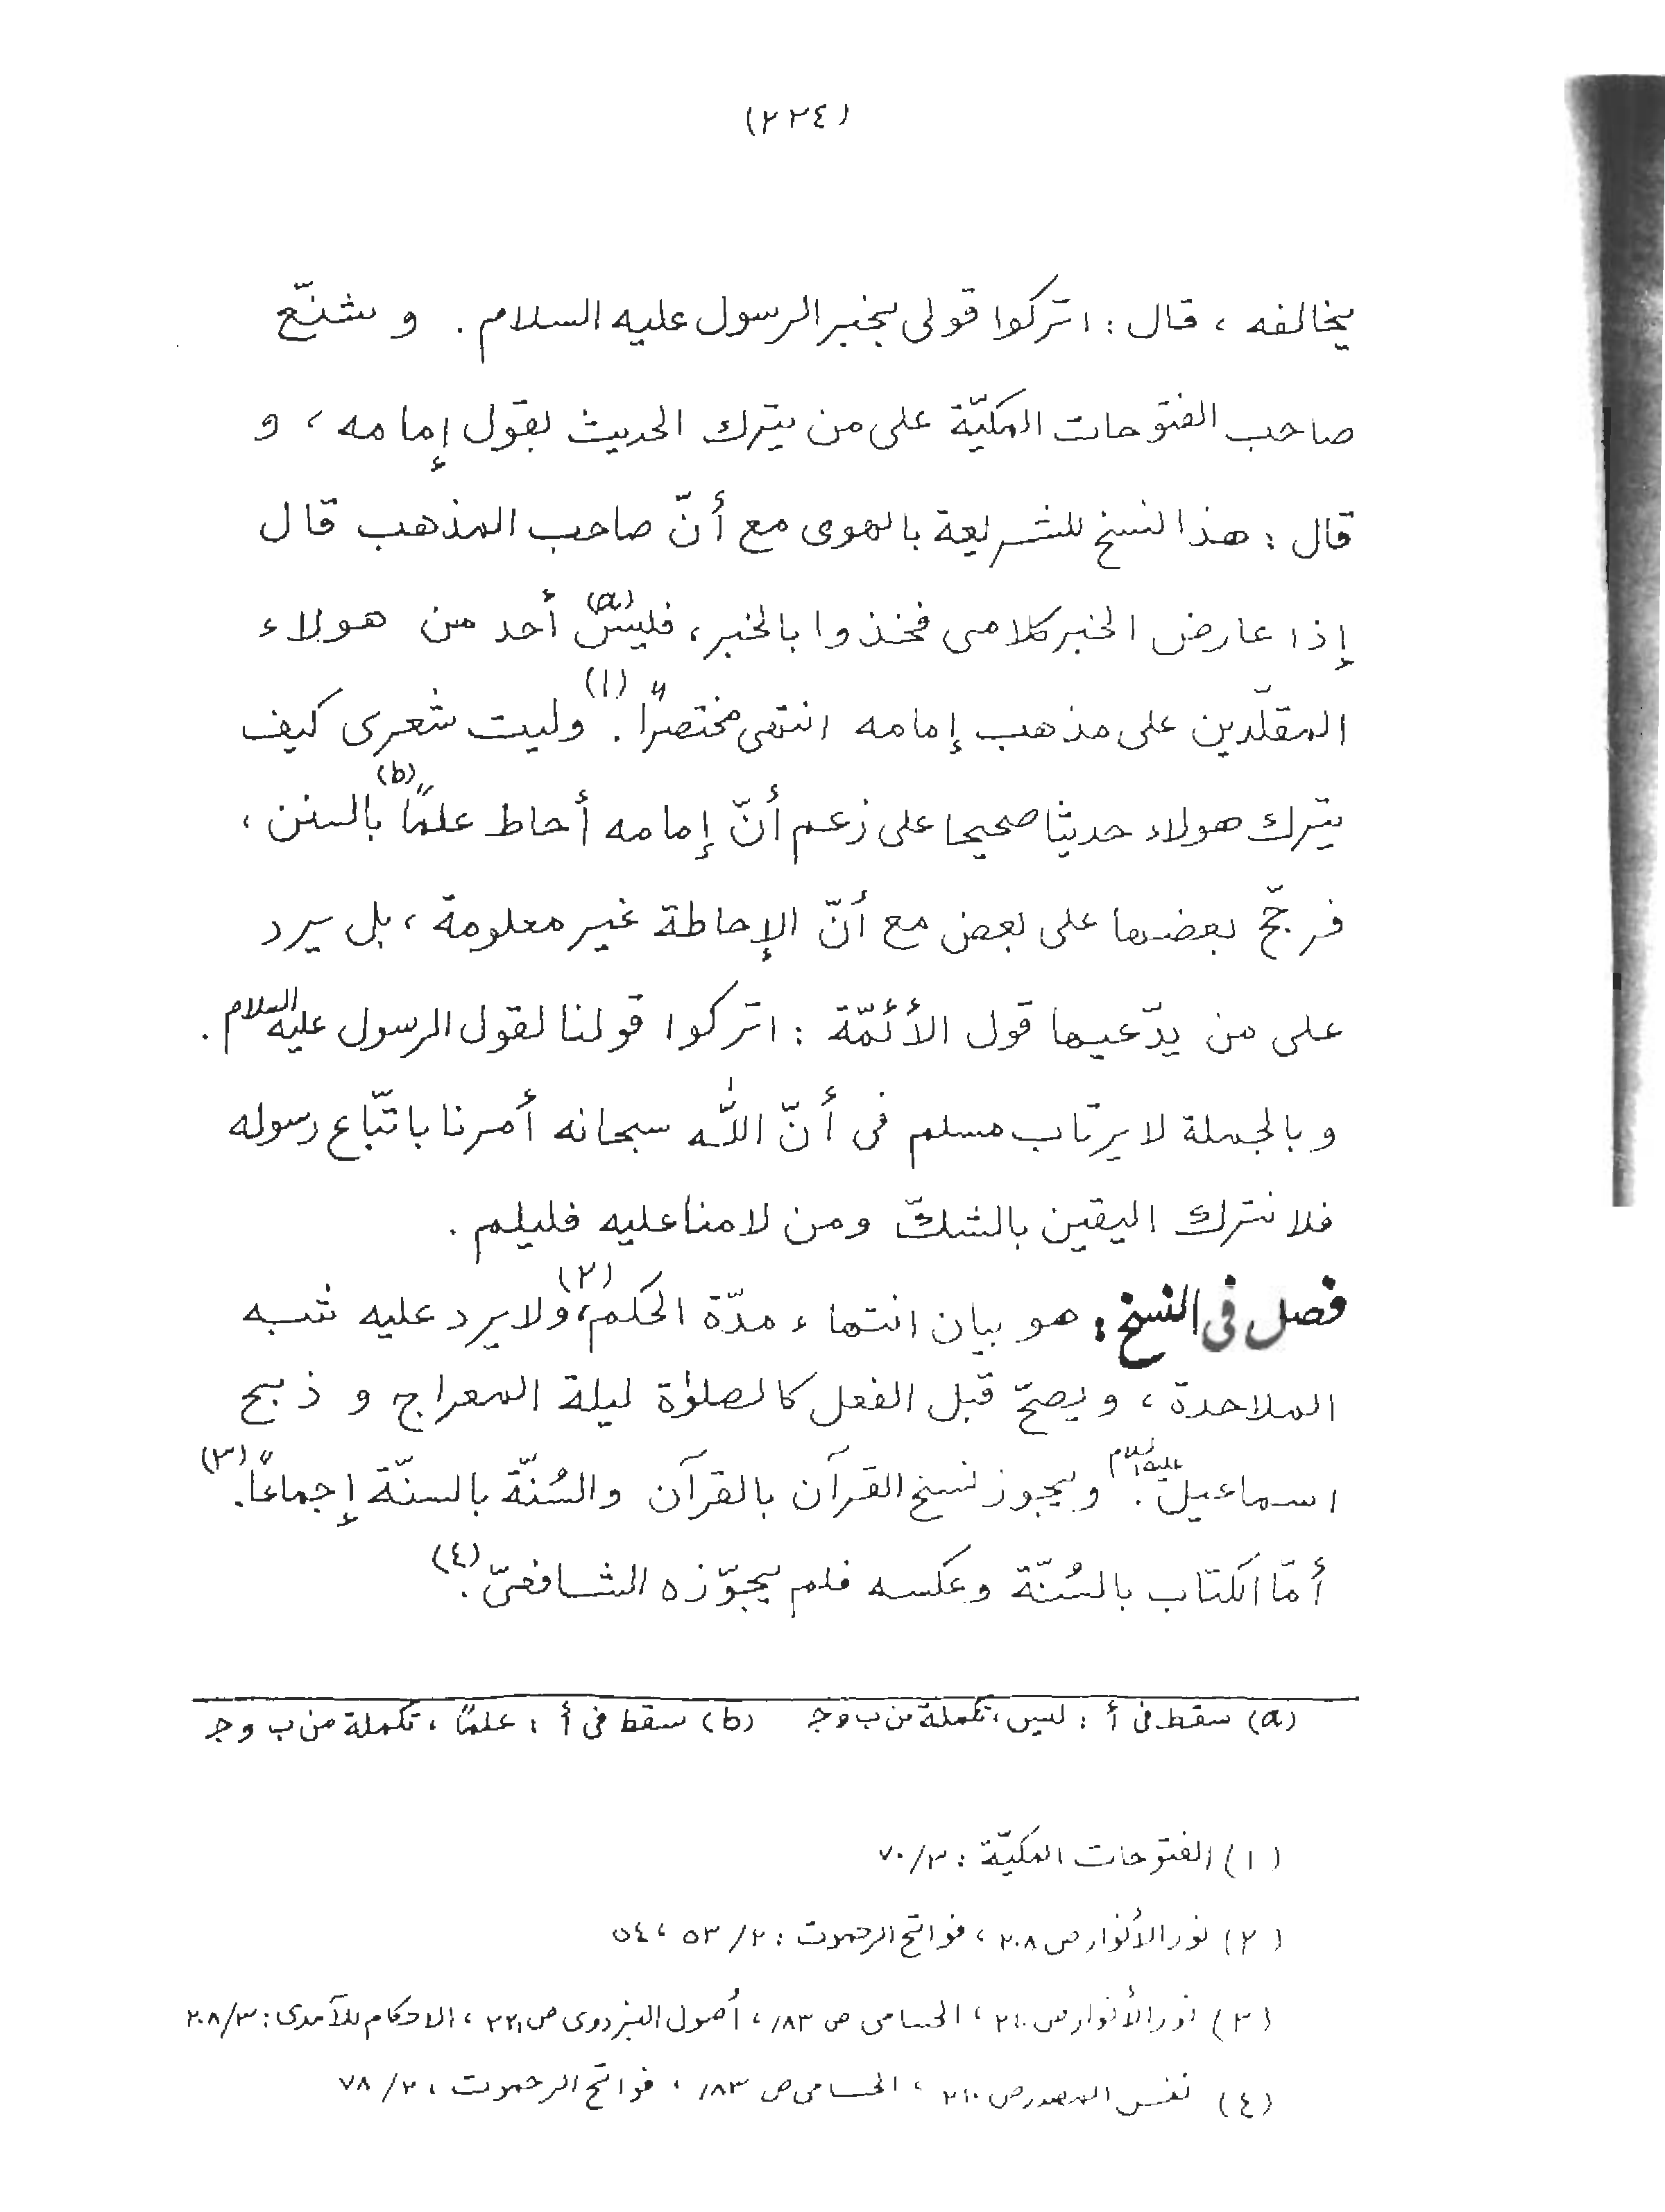 (٢٢٤)
يخالفه ، قال : اتركوا قولى بخبر الرسول عليه السلام . و شنّع
صاحب الفتوحات المكيّة على من يترك الحديث بقول إمامه ، و
قال : هذا نسخ للشريعة بالهوى مع أنّ صاحب المذهب قال
إذا عارض الخبر كلامى فخذوا بالخبر ، فليس(a) أحد من هولاء
المقلّدين على مذهب إمامه انتهى مختصرًا . (١) وليت شعرى كيف
يترك هولاء حديثا صحيحا على زعم أنّ إمامه أحاط علمًا(b) بالسنن ،
فرجّح بعضها على بعض مع أنّ الإحاطة غير معلومة ، بل يرد
على من يدّعيها قول الأئمّة : اتركوا قولنا لقول الرسول عليه السلام .
و بالجملة لا يرتاب مسلم فى أنّ اللّٰه سبحانه أمرنا باتّباع رسوله
فلا نترك اليقين بالشكّ ومن لامنا عليه فليلم .
فصل فى النسخ : هو بيان انتهاء مدّة الحكم ،(٢) ولا يرد عليه شبه
الملاحدة ، و يصحّ قبل الفعل كالصلوٰة ليلة المعراج و ذبح
اسماعيل عليه السلام . و يجوز نسخ القرآن بالقرآن والسُنّة بالسنّة إجماعاً . (٣)
أمّا الكتاب بالسُنّة وعكسه فلم يجوّزه الشافعىّ . (٤)
(a) سقط فى أ : ليس ، تكملة من ب و جـ (b) سقط فى أ : علمًا ، تكملة من ب و جـ
(١) الفتوحات المكيّة : ٣/٧٠
(٢) نور الأنوار ص ٢٠٨ ، فواتح الرحموت : ٢/ ٥٣ ، ٥٤
(٣) نور الأنوار ص ٢١٠ ، الحسامى ص ١٨٣ ، أصول البزدوى ص ٢٢١ ، الاحكام للآمدى : ٣/٢٠٨
(٤) نفس المصدر ص ٢١٠ ، الحسامى ص ١٨٣ ، فواتح الرحموت : ٢/ ٧٨